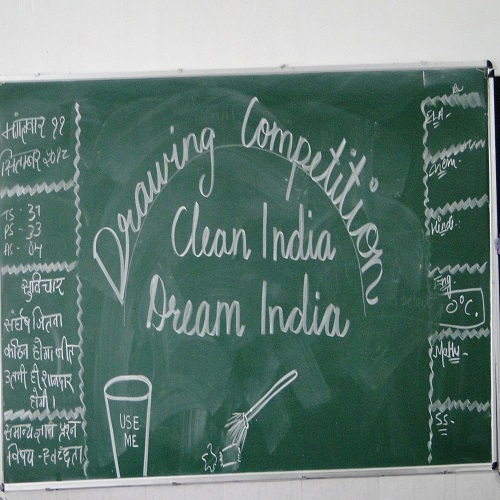 मंगलवार ११
सितम्बर २०१८
TS - 37
PS - 33
AS - 04
सुविचार
संघर्ष जितना
कठिन होगा जीत
उतनी ही शानदार
होगी।
सामान्य ज्ञान प्रश्न
विषय - स्वच्छता
Drawing Competition
Clean India
Dream India
USE
ME
Hindi-
Eng
0°C.
Maths-
SS-